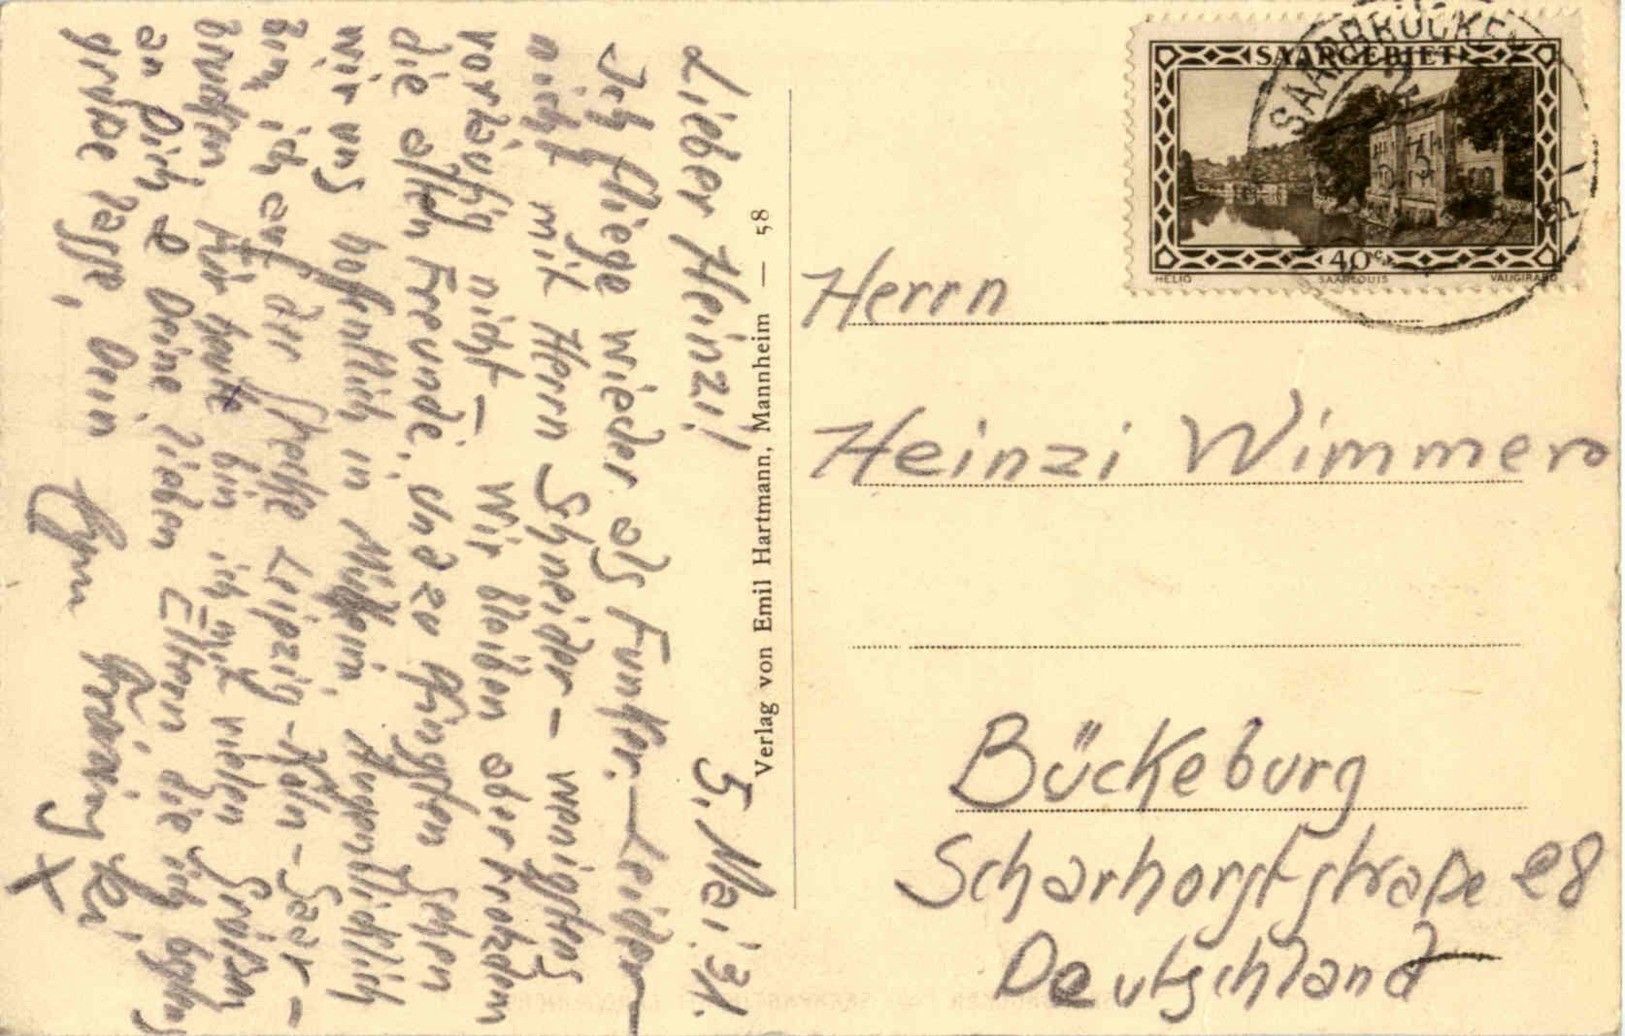 Lieber Heinzi!
5. Mai '31.
Ich fliege wieder als Funker. - Leider
nicht mit Herrn Schneider - wenigstens
vorläufig nicht -. Wir bleiben aber trotzdem
die alten Freunde. Und zu Pfingsten sehen
wir uns hoffentlich in Mülheim. Augenblicklich
bin ich auf der Strecke Leipzig-Köln-Saar-
brücken. Für heute bin ich mit vielen Grüßen
an Dich & Deine lieben Eltern, die ich
grüße lasse, Dein
Verlag von Emil Hartmann, Mannheim — 58
SAARGEBIET
SAARBRÜCKEN
40c.
HELIO SAARLOUIS VAUGIRARD
Herrn
Heinzi Wimmer
Bückeburg
Scharhorststraße 28
Deutschland